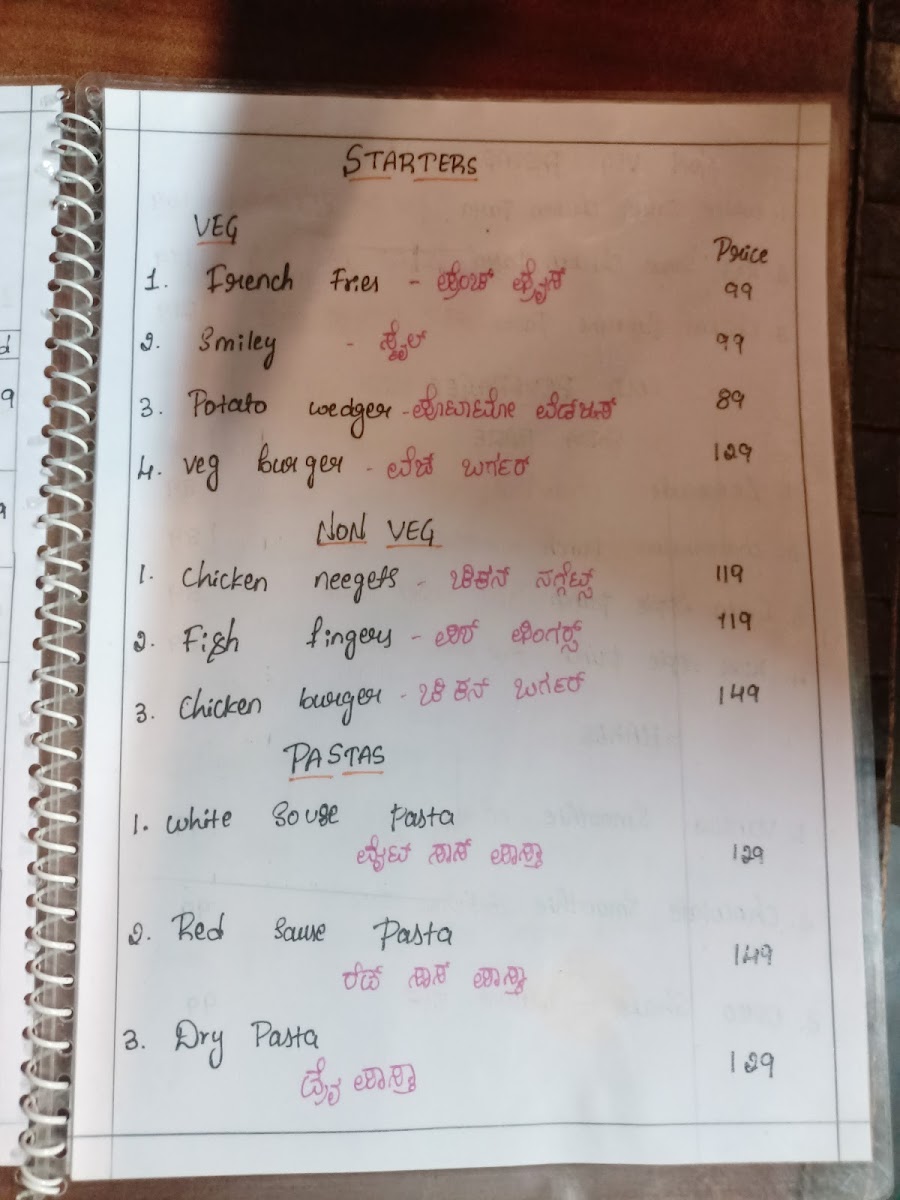 STARTERS
VEG
Price
1. French Fries - ಫ್ರೆಂಚ್ ಫ್ರೈಸ್ 99
2. Smiley - ಸ್ಮೈಲ್ 99
3. Potato wedger - ಪೊಟಾಟೋ ವೆಡಜಸ್ 89
4. veg burger - ವೆಜ್ ಬರ್ಗರ್ 129
NON VEG
1. Chicken neegets - ಚಿಕನ್ ನಗ್ಗೆಟ್ಸ್ 119
2. Fish fingers - ಫಿಶ್ ಫಿಂಗರ್ಸ್ 119
3. Chicken burger - ಚಿಕನ್ ಬರ್ಗರ್ 149
PASTAS
1. white Souse Pasta
ವೈಟ್ ಸಾಸ್ ಪಾಸ್ತಾ 129
2. Red Sause Pasta
ರೆಡ್ ಸಾಸ್ ಪಾಸ್ತಾ 149
3. Dry Pasta
ಡ್ರೈ ಪಾಸ್ತಾ 129